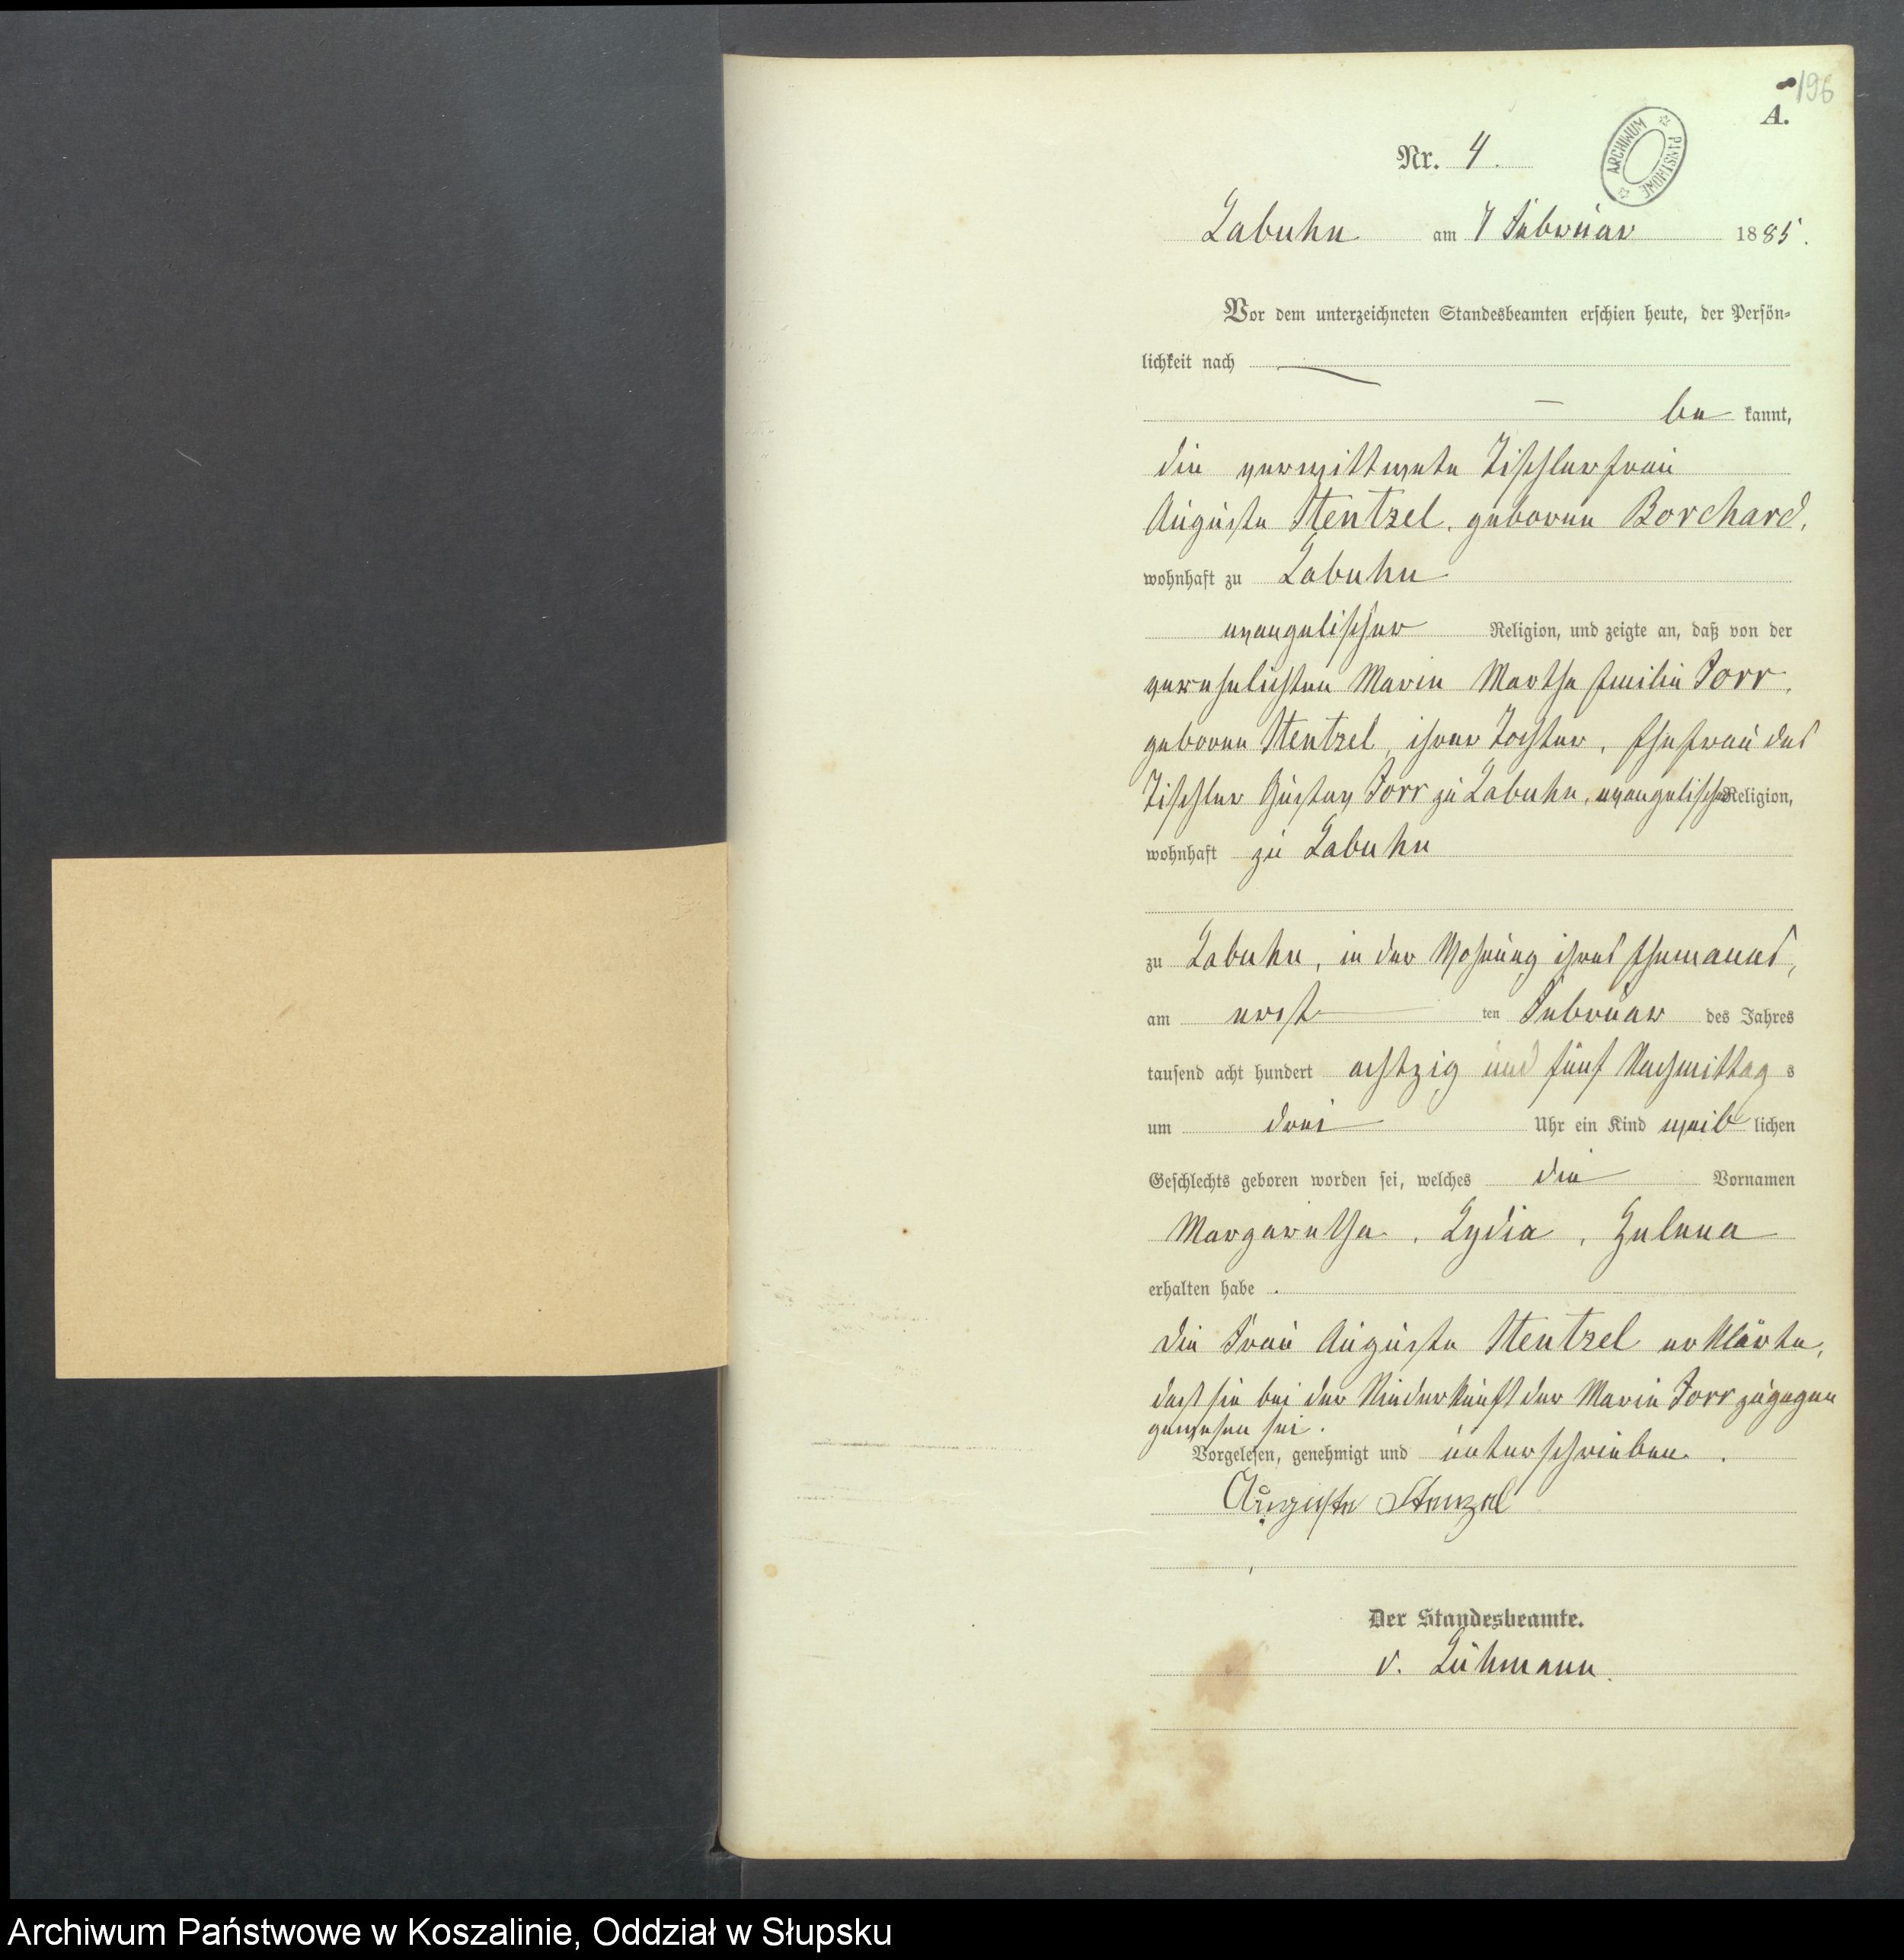 196
A.
ARCHIWUM PAŃSTWOWE
Nr. 4.
Labuhn am 7 Februar 1885.
Vor dem unterzeichneten Standesbeamten erschien heute, der Persön-
lichkeit nach
be kannt,
die verwittwete Tischlerfrau
Auguste Stentzel, geborene Borchard,
wohnhaft zu Labuhn
evangelischer Religion, und zeigte an, daß von der
verehelichten Marie Martha Emilie Torr,
geborene Stentzel, ihrer Tochter, Ehefrau des
Tischler Gustav Torr zu Labuhn, evangelischer Religion,
wohnhaft zu Labuhn
zu Labuhn, in der Wohnung ihres Ehemanns,
am erst ten Februar des Jahres
tausend acht hundert achtzig und fünf Nachmittag s
um drei Uhr ein Kind weib lichen
Geschlechts geboren worden sei, welches die Vornamen
Margarethe, Lydia, Helena
erhalten habe.
Die Frau Auguste Stentzel erklärte,
dass sie bei der Niederkunft der Marie Torr zugegen
gewesen sei.
Vorgelesen, genehmigt und unterschrieben.
Auguste Stenzel
Der Standesbeamte.
v. Lühmann.
Archiwum Państwowe w Koszalinie, Oddział w Słupsku